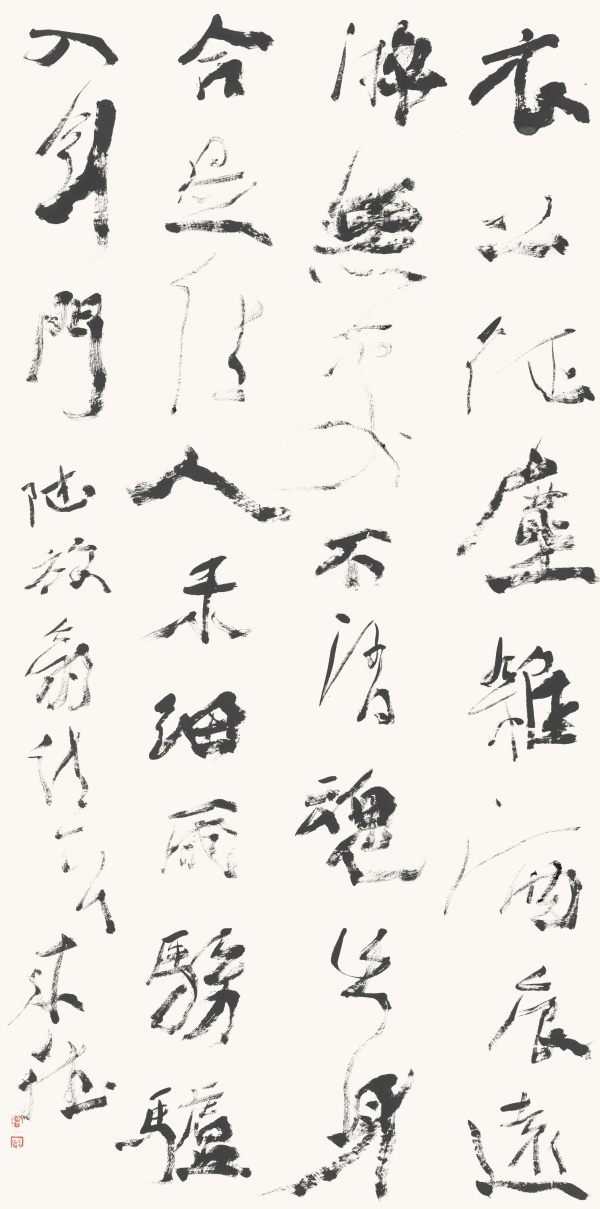 衣上征塵雜酒痕遠
游無處不消魂此身
合是詩人未細雨騎驢
入劍門 陸放翁詩